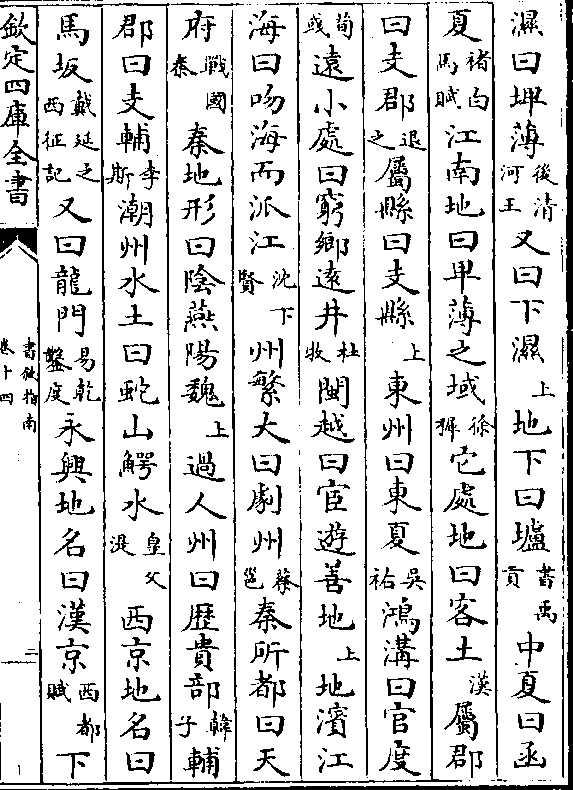 濕曰埤薄後清河王又曰下濕上地下曰壚書禹貢中夏曰函
夏褚白馬賦江南地曰卑薄之域徐穉它處地曰客土漢屬郡
曰支郡退之屬縣曰支縣上東州曰東夏吳祐鴻溝曰官度
荀彧遠小處曰窮鄉遠井杜牧閩越曰宦遊善地上地濱江
海曰吻海而派江沈下賢州繁大曰劇州蔡邕秦所都曰天
府戰國秦秦地形曰陰燕陽魏上過人州曰歴貴部韓子輔
郡曰支輔李斯潮州水土曰蛇山鱷水皇父湜西京地名曰
馬坂戴延之西征記又曰龍門易乾鑿度永興地名曰漢京西都賦下
欽定四庫全書
書敘指南
卷十四
三